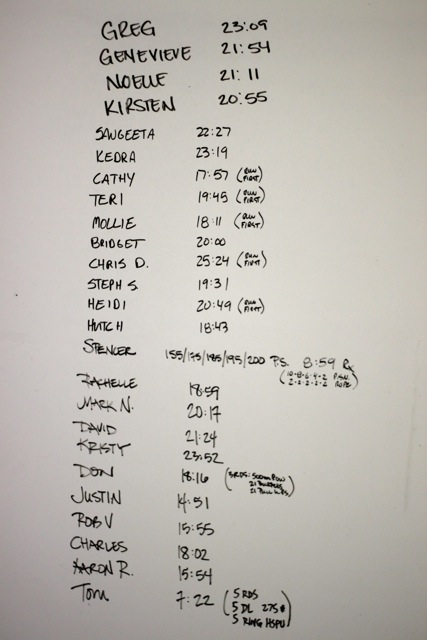 GREG 23:09
GENEVIEVE 21:54
NOELLE 21:11
KIRSTEN 20:55
SANGEETA 22:27
KEDRA 23:19
CATHY 17:57 (RUN FIRST)
TERI 19:45 (RUN FIRST)
MOLLIE 18:11 (RUN FIRST)
BRIDGET 20:00
CHRIS D. 25:24 (RUN FIRST)
STEPH S. 19:31
HEIDI 20:49 (RUN FIRST)
HUTCH 18:43
SPENCER 155/175/185/195/200 P.S. 8:59 Rx
(10-8-6-4-2
2-2-2-2-2 ROPE)
RACHELLE 18:59
MARK N. 20:17
DAVID 21:24
KRISTY 23:52
DON 18:16 (3RDS: 500m ROW
21 BURPEES
21)
JUSTIN 14:51
ROB V 15:55
CHARLES 18:02
AARON R. 15:54
Tom 7:22 (5 RDS
5 DL 275#
5 RING HSPU)